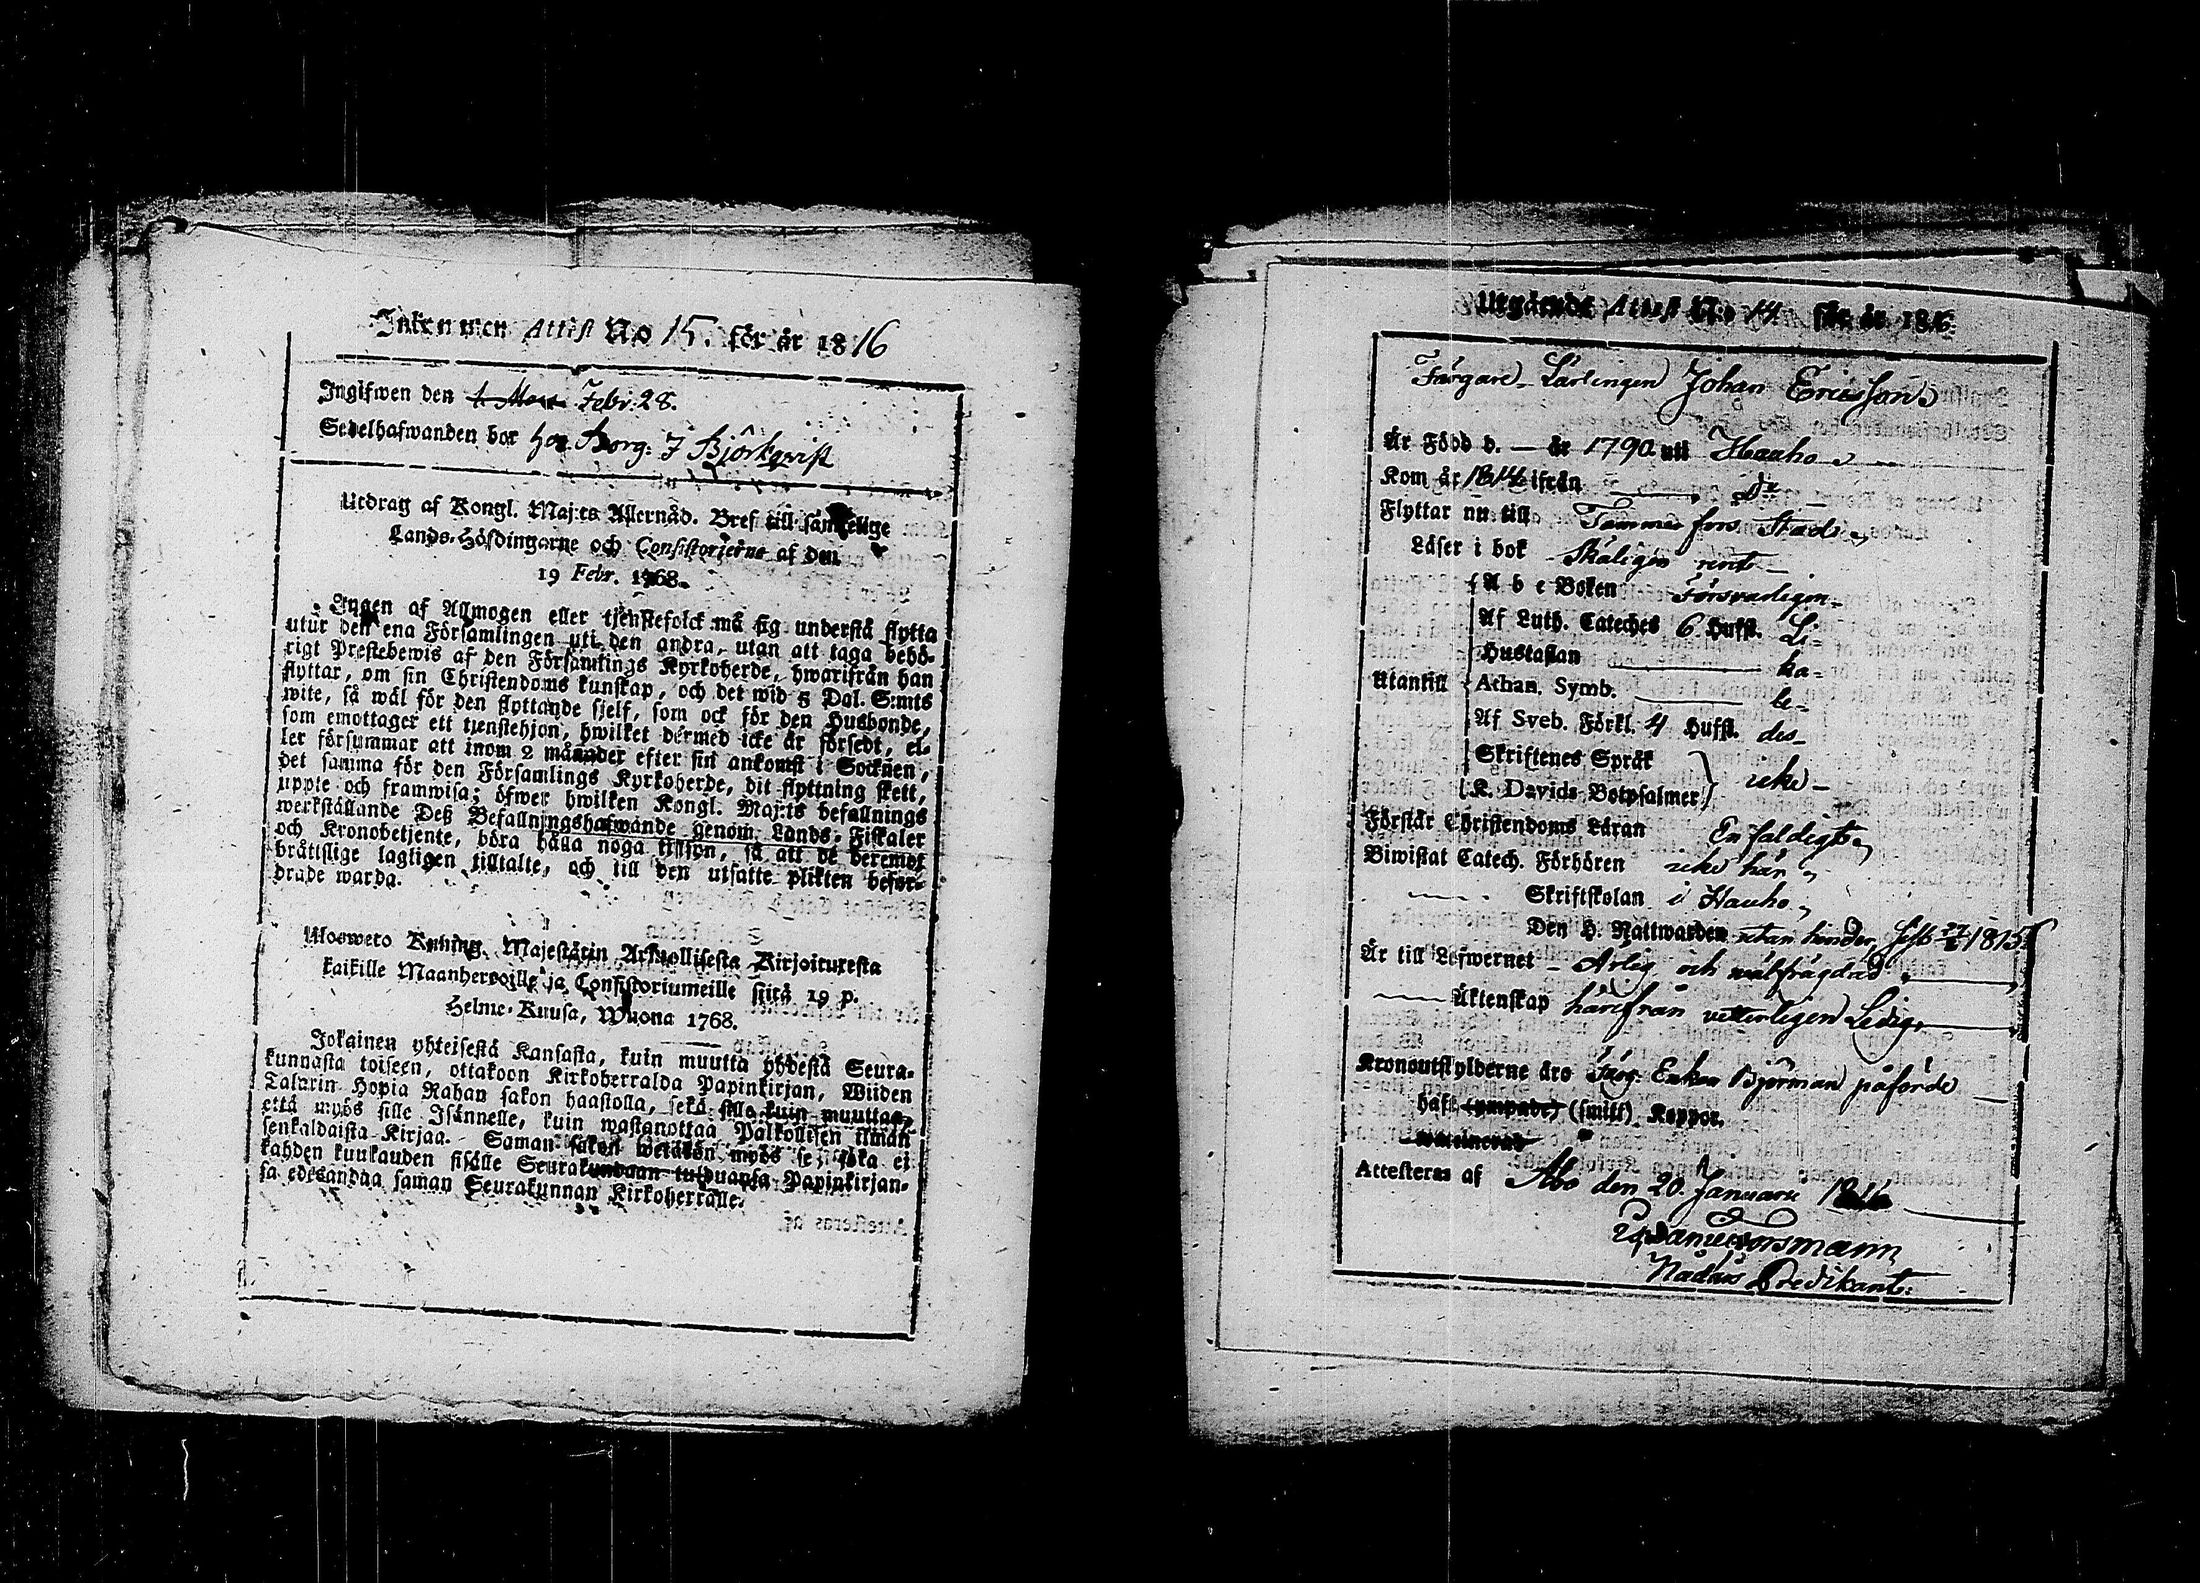 Inkommen Attest No 15. för år 1816
Ingifwen den 1 Mars Febr: 28.
Sedelhafwanden bor hos Borg: J Björkqvist
Utdrag af Kongl. Maj:ts Allernåd. Bref till samtelige
Lands-Höfdingarne och Consistorierne af den
19 Febr. 1768.
Ingen af Allmogen eller tjenstefolck må sig understå flytta
utur den ena Församlingen uti den andra, utan att taga behö-
rigt Prestebewis af den Församlings Kyrkoherde, hwarifrån han
flyttar, om sin Christendoms kunskap, och det wid 5 Dal. S:mts
wite, så wäl för den flyttande sjelf, som ock för den Husbonde,
som emottager ett tjenstehjon, hwilket dermed icke är försedt, el-
ler försummar att inom 2 månader efter sin ankomst i Socknen,
det samma för den Församlings Kyrkoherde, dit flyttning skett,
uppte och framwisa; öfwer hwilken Kongl. Maj:ts befallnings
werkställande Deß Befallningshafwande genom Lands-Fiskaler
och Kronobetjente, böra hålla noga tillsyn, så att de deremot
bråttslige lagligen tilltalte, och till den utsatte plikten befor-
drade warda.
Ulosweto Kuning. Majestätin Armollisesta Kirjoituresta
kaikille Maanherroille ja Consistoriumeille siitä 19 p.
Helme-Kuusa, Wuona 1768.
Jokainen yhteisestä Kansasta, kuin muutta yhdestä Seura-
kunnasta toiseen, ottakoon Kirkoherralda Papinkirjan, Wiiden
Talarin Hopia Rahan sakon haastolla, sekä sille kuin muuttaa,
että myös sille Isännelle, kuin wastanottaa Palkollisen ilman
senkaldaista Kirjaa. Saman sakon wetäkön myös se, joka ei
kahden kuukauden sisälle Seurakundaan tulduansa Papinkirjan-
sa edesandaa saman Seurakunnan Kirkoherralle.
Utgående Attest N:o 14. för år 1816.
Färgare Lärlingen Johan Ericsson
Är Född d. — år 1790. uti Hauho
Kom år 1814 ifrån — D:o
Flyttar nu till Tammerfors Stad
Läser i bok Skäligen rent
A b c Boken Försvarligen
Af Luth. Cateches 6 Hufst. Li-
Hustaflan — ka-
Utantill Athan. Symb. — le-
Af Sveb. Förkl. 4 Hufst. des
Skriftenes Språk
K. Davids Botpsalmer icke
Förstår Christendoms Läran Enfaldigt
Biwistat Catech. Förhören icke här
Skriftskolan i Hauho
Den H. Nattwarden utan hinder, sist 1815
Är till Lefwernet Ärlig och wälfrägdad
Äktenskap härifrån vetterligen Ledig
Kronoutskylderne äro Färg. Enkan Björman påförde
haft (ympade) (smitt) Koppor.
Attesteras af Åbo den 20. Januarii 1816
Nådårs Predikant.